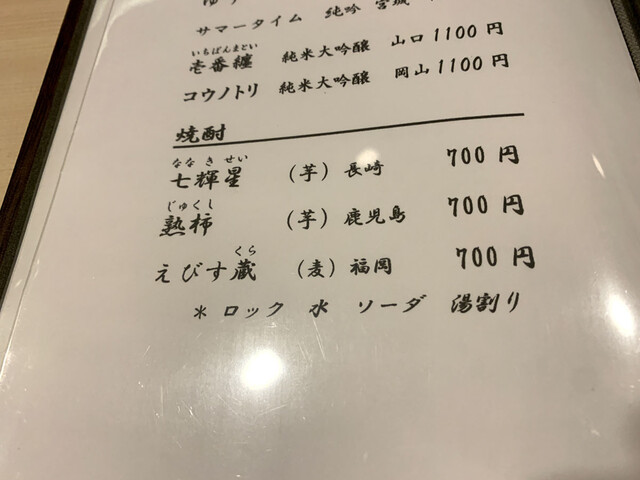 サマータイム 純吟 宮城
いちばんまとい
壱番纏 純米大吟醸 山口 1100 円
コウノトリ 純米大吟醸 岡山 1100 円
焼酎
ななきせい
七輝星 (芋) 長崎 700 円
じゅくし
熟柿 (芋) 鹿児島 700 円
くら
えびす蔵 (麦) 福岡 700 円
* ロック 水 ソーダ 湯割り